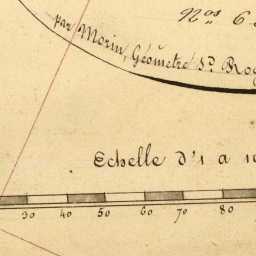 Nos 6
par Morin, Géomètre
Echelle d'1 a
30 40 50 60 70 80